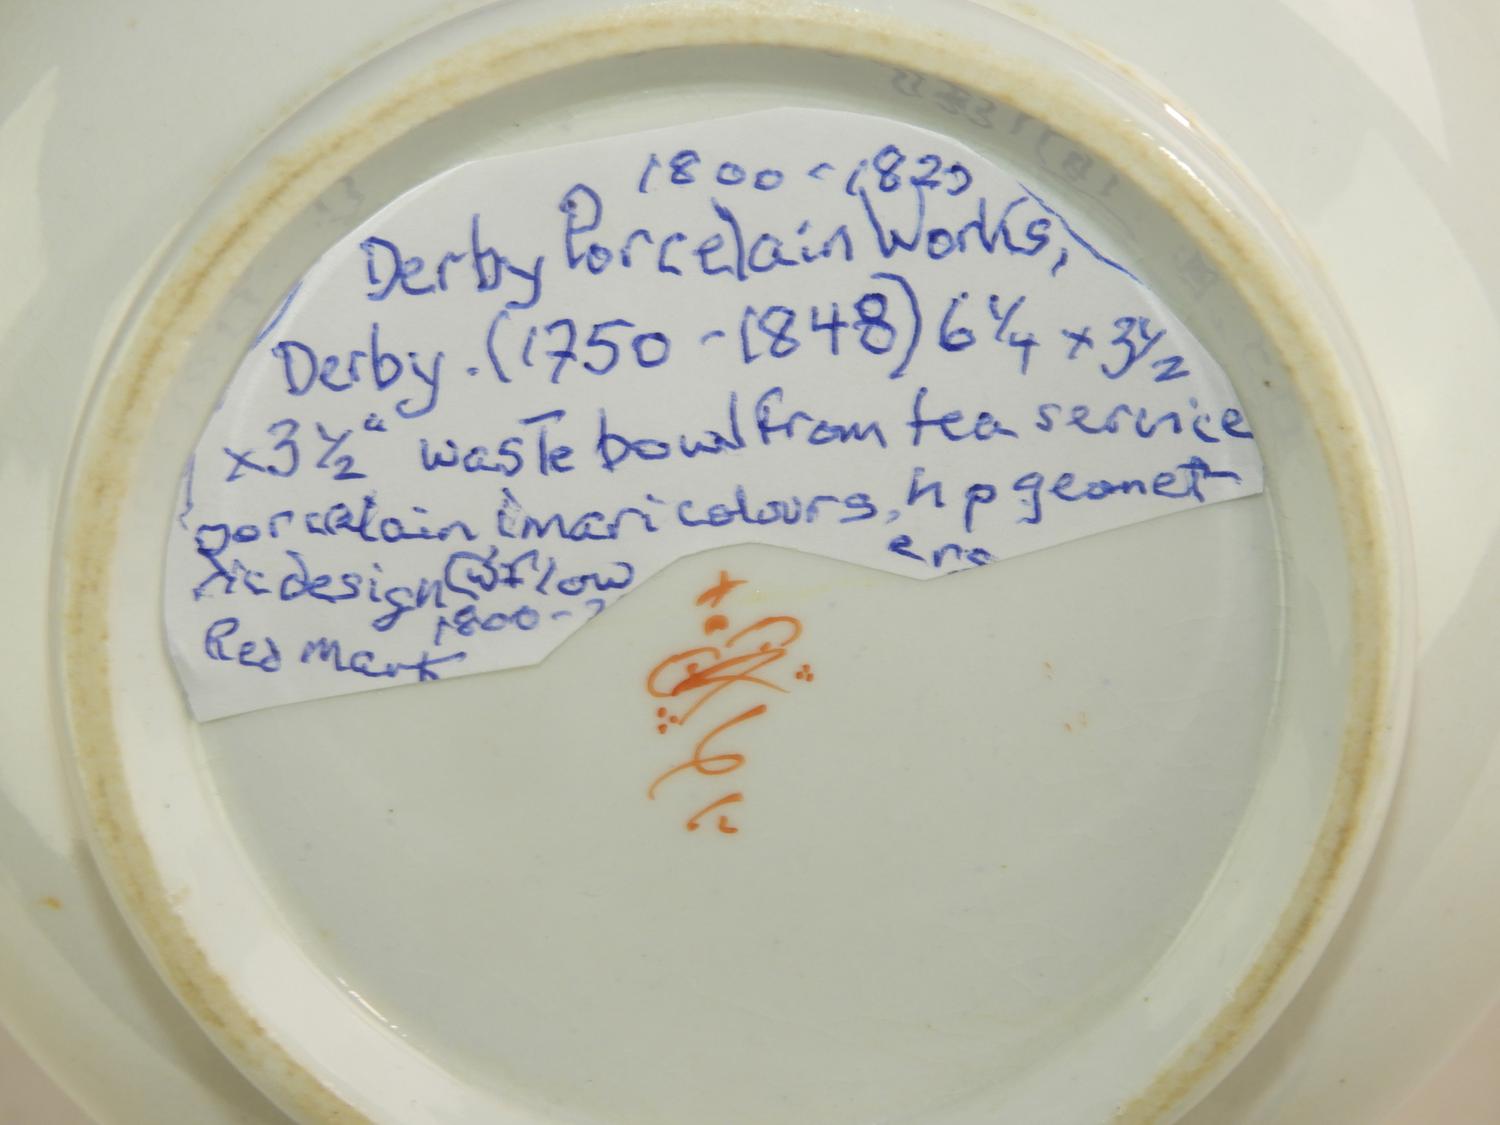 1800-1820
Derby Porcelain Works,
Derby. (1750-1848) 6 1/4 x 3 1/2
x 3 1/2" waste bowl from tea service
porcelain imari colours, h p geomet
ric design
Red mark 1800-